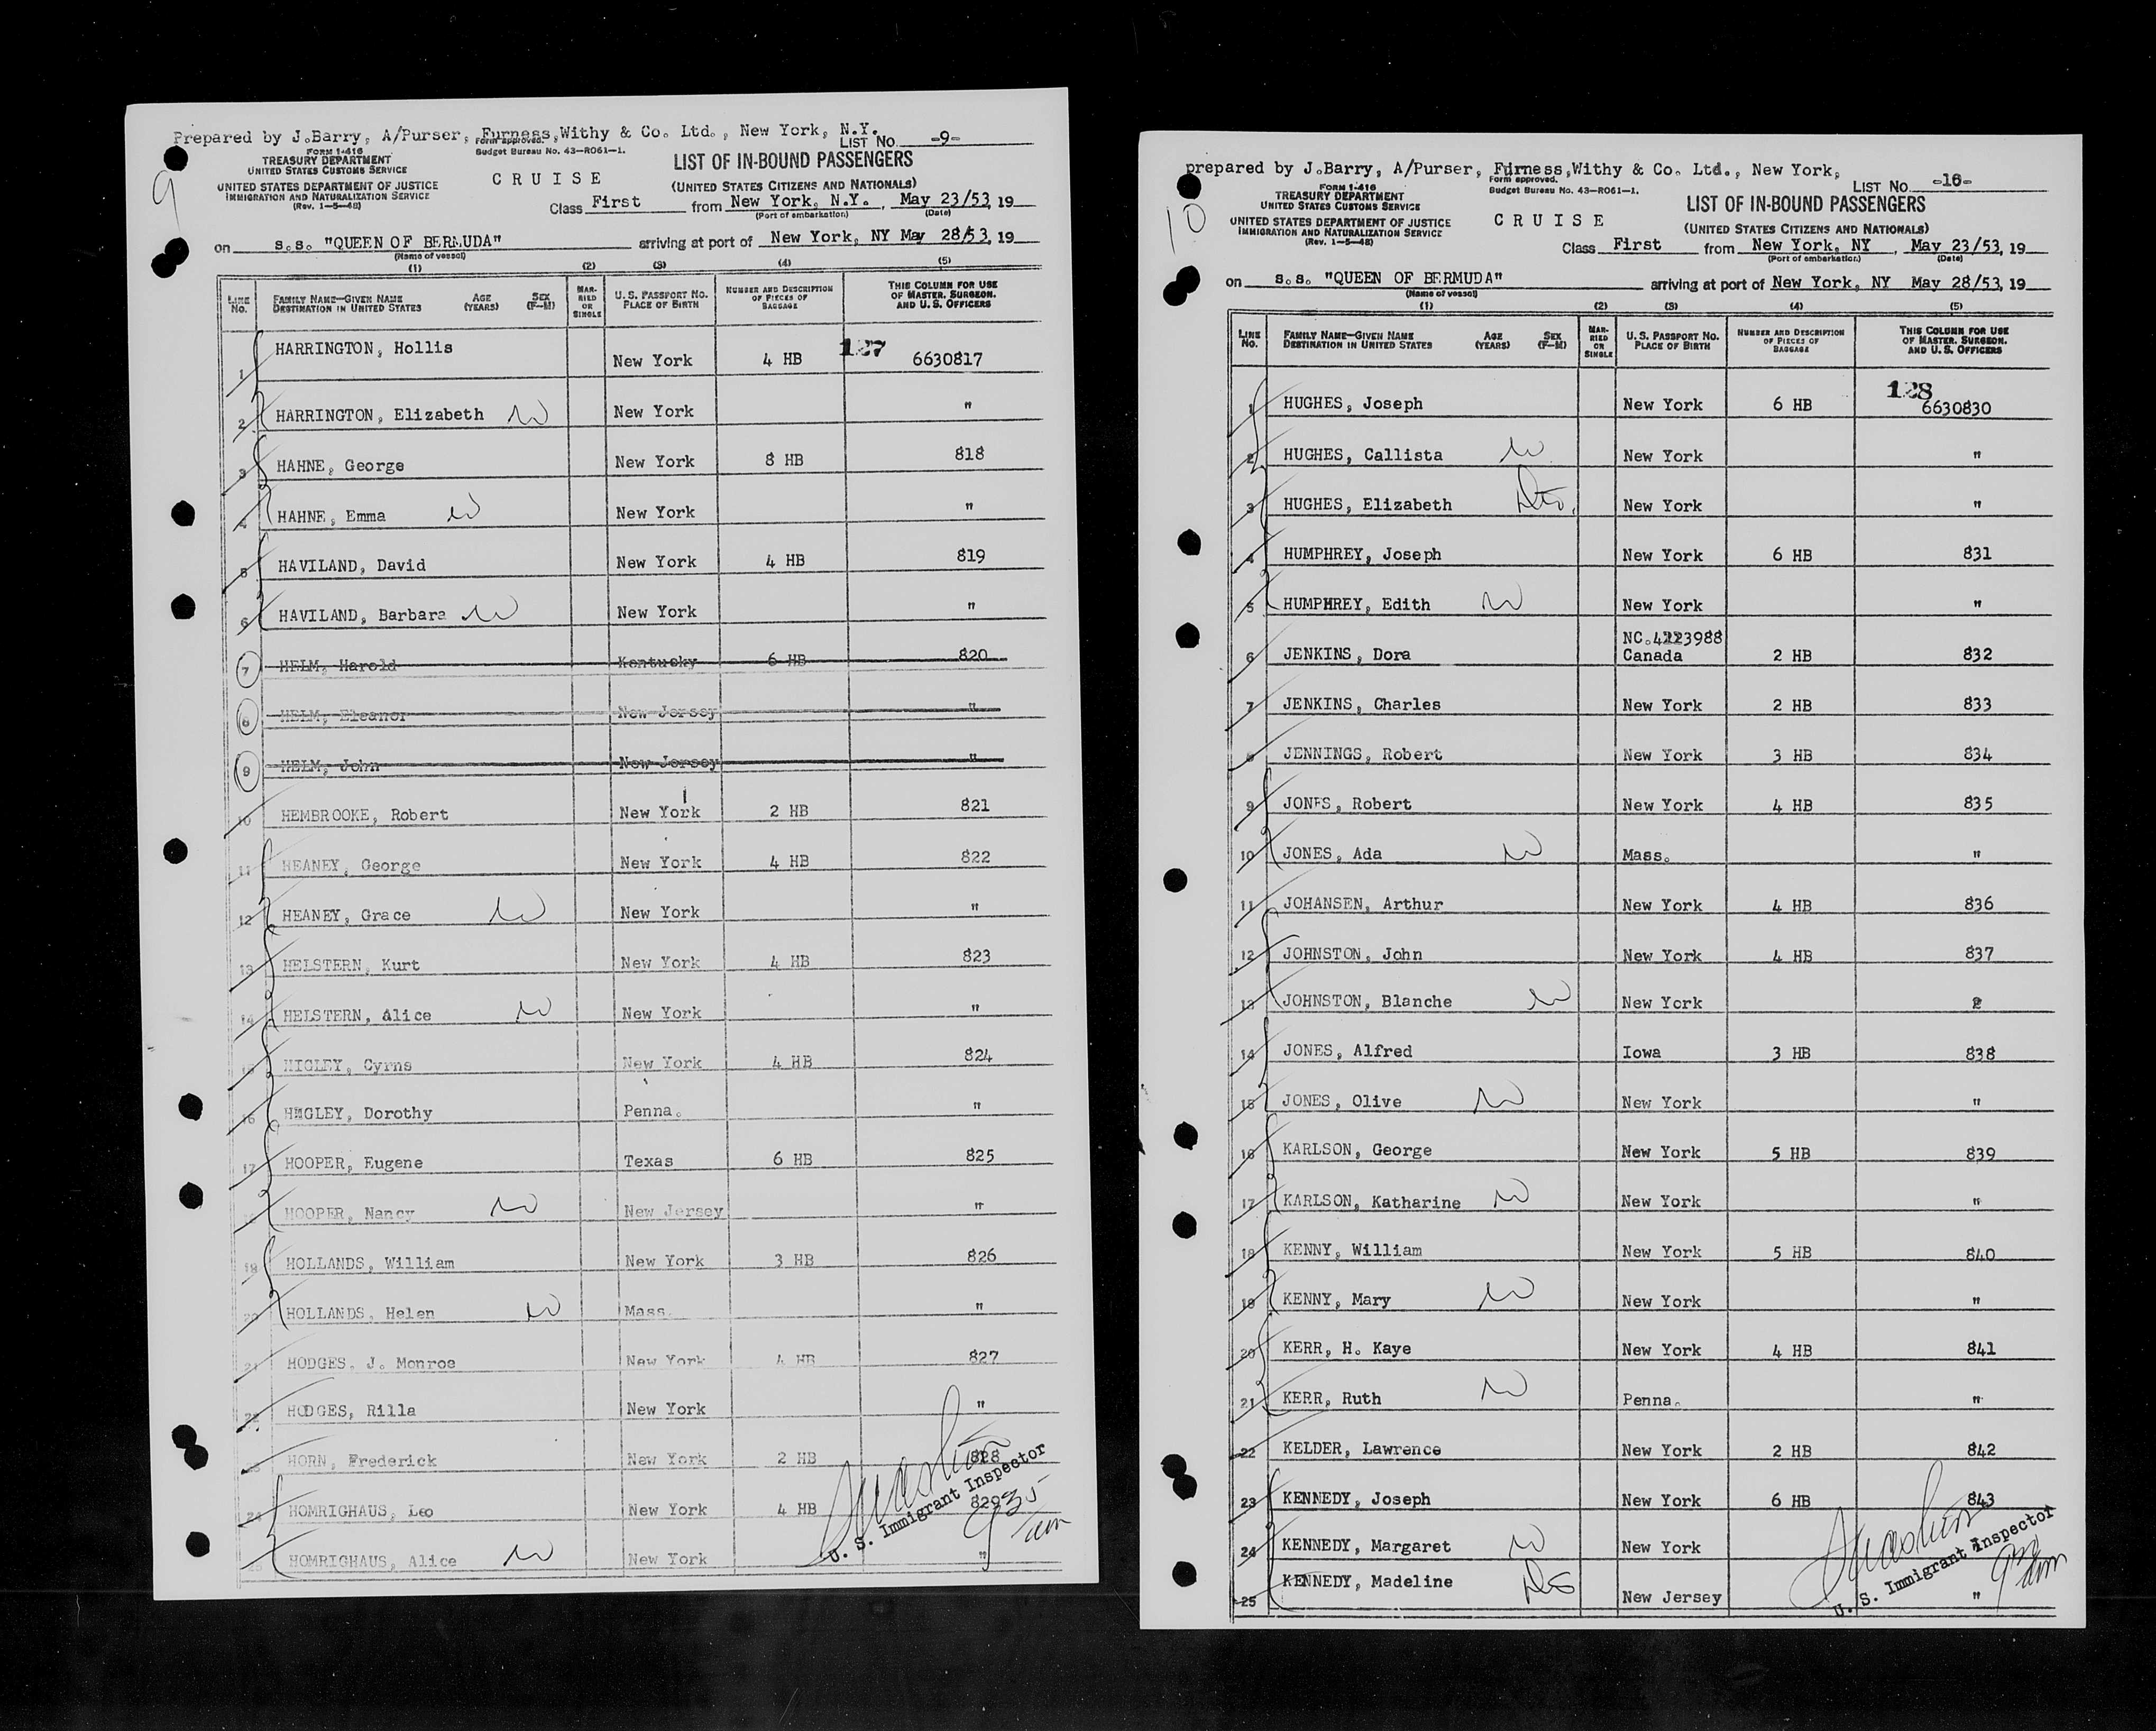 Prepared by J.Barry, A/Purser, Furness,Withy & Co. Ltd., New York, N.Y.
Form approved.
Budget Bureau No. 43—R061—1.
LIST NO. -9-
9
FORM I-416
TREASURY DEPARTMENT
UNITED STATES CUSTOMS SERVICE
UNITED STATES DEPARTMENT OF JUSTICE
IMMIGRATION AND NATURALIZATION SERVICE
(Rev. 1—5—48)
CRUISE
LIST OF IN-BOUND PASSENGERS
(UNITED STATES CITIZENS AND NATIONALS)
Class First from New York, N.Y., May 23/53, 19
(Port of embarkation) (Date)
on s.s. "QUEEN OF BERMUDA" arriving at port of New York, NY May 28/53, 19
(Name of vessel)
(1) (2) (3) (4) (5)
LINE No. FAMILY NAME—GIVEN NAME DESTINATION IN UNITED STATES AGE (YEARS) SEX (F—M) MARRIED OR SINGLE U. S. PASSPORT NO. PLACE OF BIRTH NUMBER AND DESCRIPTION OF PIECES OF BAGGAGE THIS COLUMN FOR USE OF MASTER, SURGEON, AND U. S. OFFICERS
127
1 HARRINGTON, Hollis New York 4 HB 6630817
2 HARRINGTON, Elizabeth W New York "
3 HAHNE, George New York 8 HB 818
4 HAHNE, Emma W New York "
5 HAVILAND, David New York 4 HB 819
6 HAVILAND, Barbara W New York "
7 HELM, Harold Kentucky 6 HB 820
8 HELM, Eleanor New Jersey "
9 HELM, John New Jersey "
10 HEMBROOKE, Robert New York 2 HB 821
11 HEANEY, George New York 4 HB 822
12 HEANEY, Grace W New York "
13 HELSTERN, Kurt New York 4 HB 823
14 HELSTERN, Alice W New York "
15 HIGLEY, Cyrns New York 4 HB 824
16 HIGLEY, Dorothy Penna. "
17 HOOPER, Eugene Texas 6 HB 825
18 HOOPER, Nancy W New Jersey "
19 HOLLANDS, William New York 3 HB 826
20 HOLLANDS, Helen W Mass. "
21 HODGES, J. Monroe New York 4 HB 827
22 HODGES, Rilla New York "
23 HORN, Frederick New York 2 HB 828
24 HOMRIGHAUS, Leo New York 4 HB 829
25 HOMRIGHAUS, Alice W New York "
U. S. Immigrant Inspector
935 am
prepared by J.Barry, A/Purser, Furness,Withy & Co. Ltd., New York,
Form approved.
Budget Bureau No. 43—R061—1.
LIST NO. -10-
10
FORM I-416
TREASURY DEPARTMENT
UNITED STATES CUSTOMS SERVICE
UNITED STATES DEPARTMENT OF JUSTICE
IMMIGRATION AND NATURALIZATION SERVICE
(Rev. 1—5—48)
CRUISE
LIST OF IN-BOUND PASSENGERS
(UNITED STATES CITIZENS AND NATIONALS)
Class First from New York, NY, May 23/53, 19
(Port of embarkation) (Date)
on s.s. "QUEEN OF BERMUDA" arriving at port of New York, NY May 28/53, 19
(Name of vessel)
(1) (2) (3) (4) (5)
LINE No. FAMILY NAME—GIVEN NAME DESTINATION IN UNITED STATES AGE (YEARS) SEX (F—M) MARRIED OR SINGLE U. S. PASSPORT NO. PLACE OF BIRTH NUMBER AND DESCRIPTION OF PIECES OF BAGGAGE THIS COLUMN FOR USE OF MASTER, SURGEON, AND U. S. OFFICERS
128
1 HUGHES, Joseph New York 6 HB 6630830
2 HUGHES, Callista W New York "
3 HUGHES, Elizabeth New York "
4 HUMPHREY, Joseph New York 6 HB 831
5 HUMPHREY, Edith W New York "
NC.4223988
6 JENKINS, Dora Canada 2 HB 832
7 JENKINS, Charles New York 2 HB 833
8 JENNINGS, Robert New York 3 HB 834
9 JONES, Robert New York 4 HB 835
10 JONES, Ada W Mass. "
11 JOHANSEN, Arthur New York 4 HB 836
12 JOHNSTON, John New York 4 HB 837
13 JOHNSTON, Blanche W New York 2
14 JONES, Alfred Iowa 3 HB 838
15 JONES, Olive W New York "
16 KARLSON, George New York 5 HB 839
17 KARLSON, Katharine W New York "
18 KENNY, William New York 5 HB 840
19 KENNY, Mary W New York "
20 KERR, H. Kaye New York 4 HB 841
21 KERR, Ruth W Penna. "
22 KELDER, Lawrence New York 2 HB 842
23 KENNEDY, Joseph New York 6 HB 843
24 KENNEDY, Margaret W New York
25 KENNEDY, Madeline New Jersey "
U. S. Immigrant Inspector